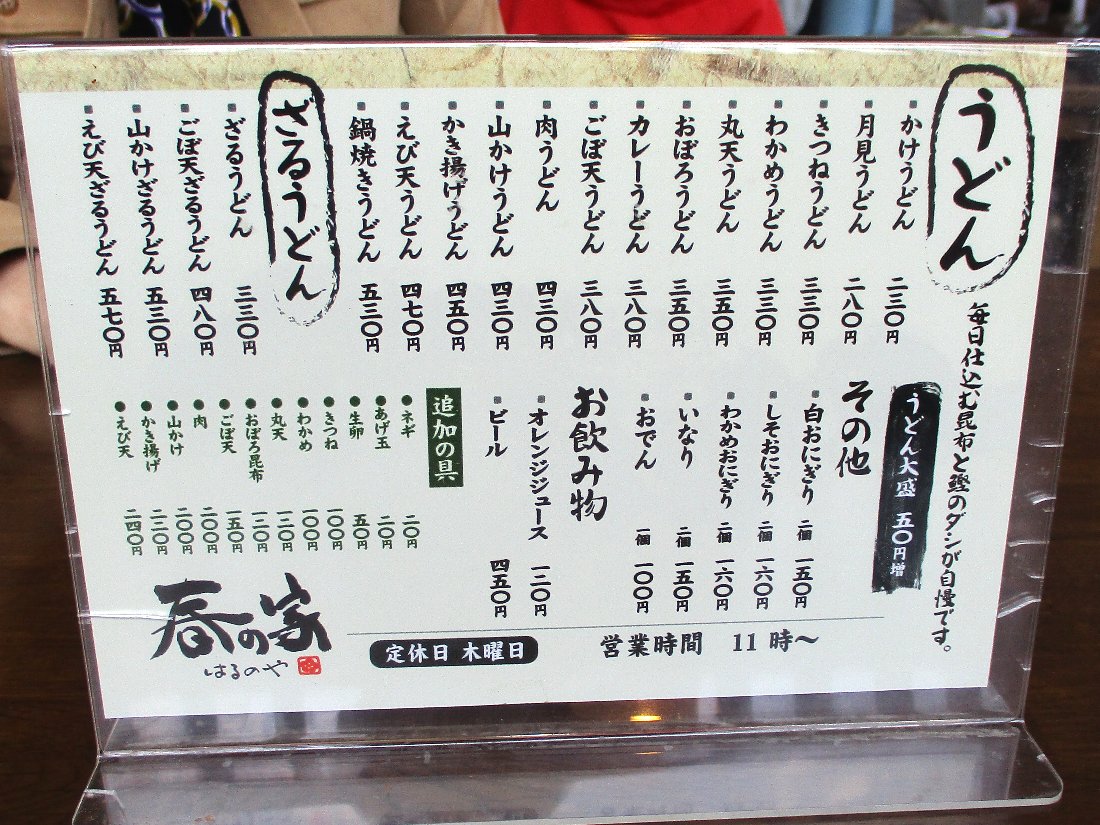 うどん
毎日仕込む昆布と鰹のダシが自慢です。
かけうどん 二三〇円
月見うどん 二八〇円
きつねうどん 三三〇円
わかめうどん 三三〇円
丸天うどん 三五〇円
おぼろうどん 三五〇円
カレーうどん 三八〇円
ごぼ天うどん 三八〇円
肉うどん 四三〇円
山かけうどん 四三〇円
かき揚げうどん 四五〇円
えび天うどん 四七〇円
鍋焼きうどん 五三〇円
ざるうどん
ざるうどん 三三〇円
ごぼ天ざるうどん 四八〇円
山かけざるうどん 五三〇円
えび天ざるうどん 五七〇円
うどん大盛 五〇円増
その他
白おにぎり 二個 一五〇円
しそおにぎり 二個 一六〇円
わかめおにぎり 二個 一六〇円
いなり 二個 一五〇円
おでん 一個 一〇〇円
お飲み物
オレンジジュース 一二〇円
ビール 四五〇円
追加の具
ネギ 二〇円
あげ玉 二〇円
生卵 五〇円
きつね 一〇〇円
わかめ 一〇〇円
丸天 一二〇円
おぼろ昆布 一二〇円
ごぼ天 一五〇円
肉 二〇〇円
山かけ 二〇〇円
かき揚げ 二二〇円
えび天 二四〇円
営業時間 11時～
定休日 木曜日
春の家
はるのや